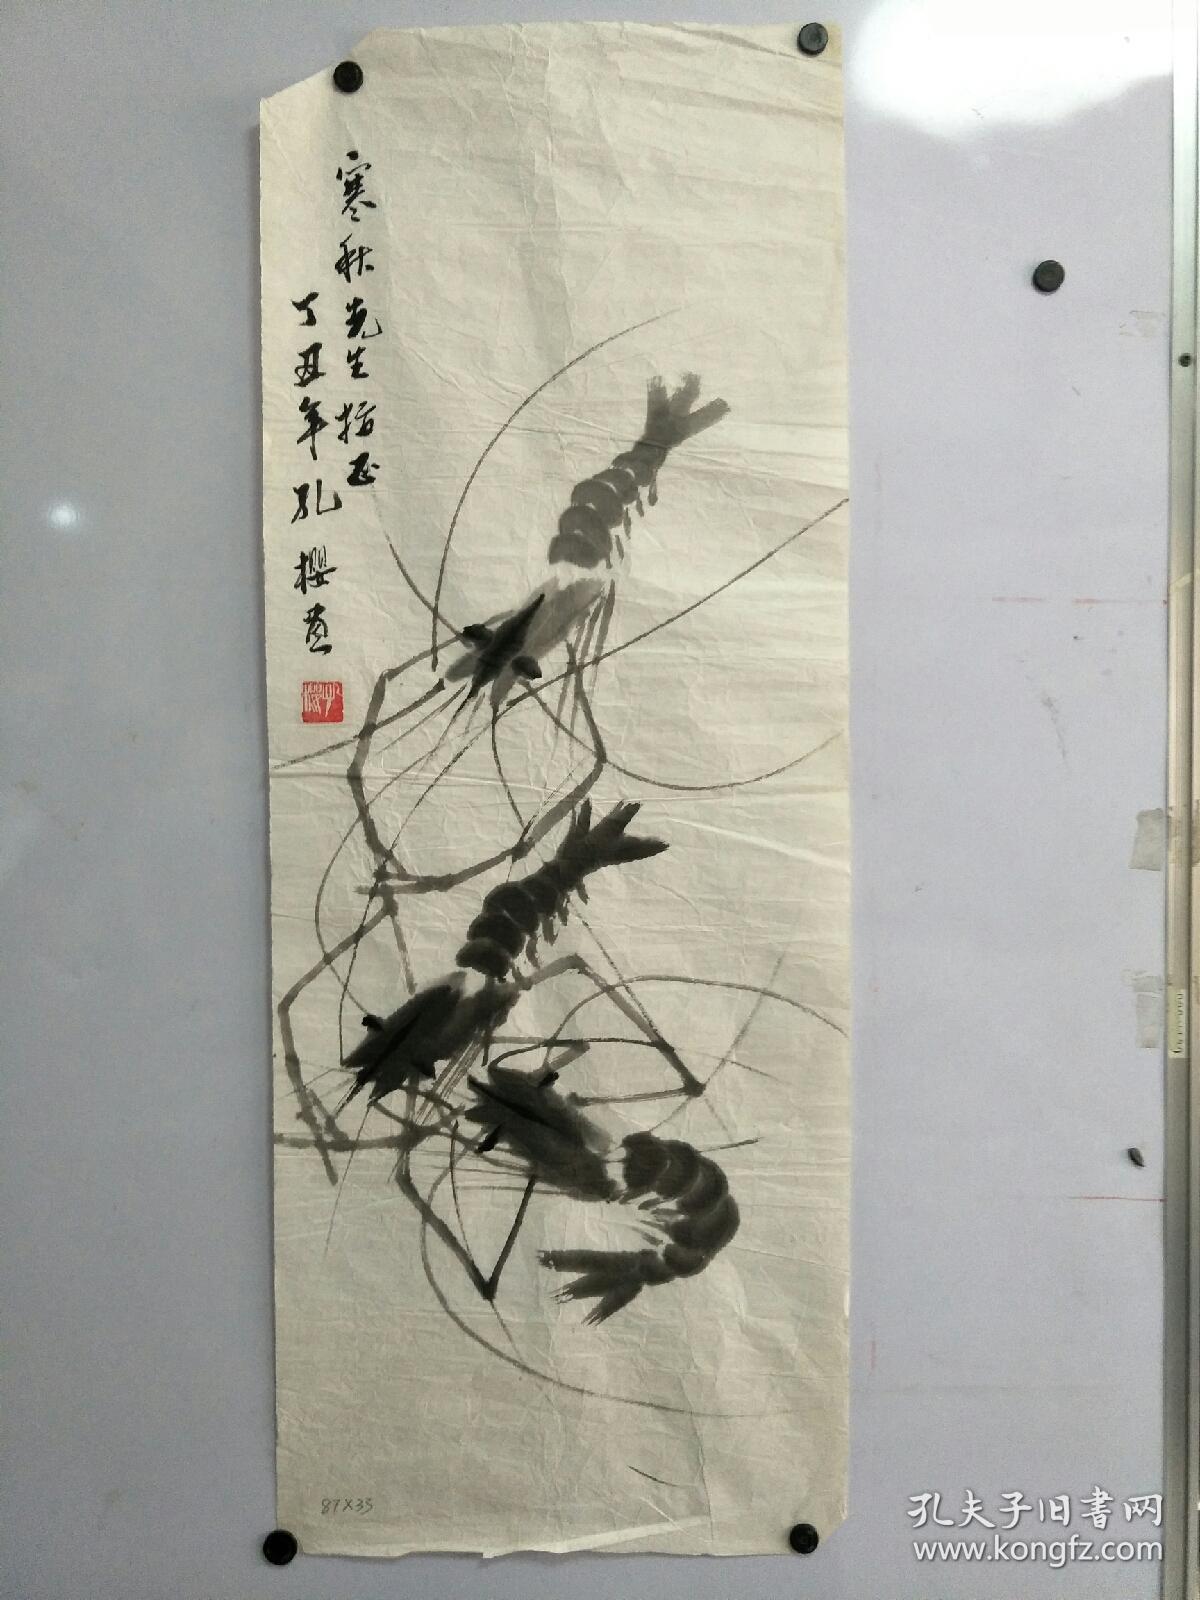 寒秋先生指正
丁丑年孔樱画
孔樱
87X33
孔夫子旧书网
www.kongfz.com